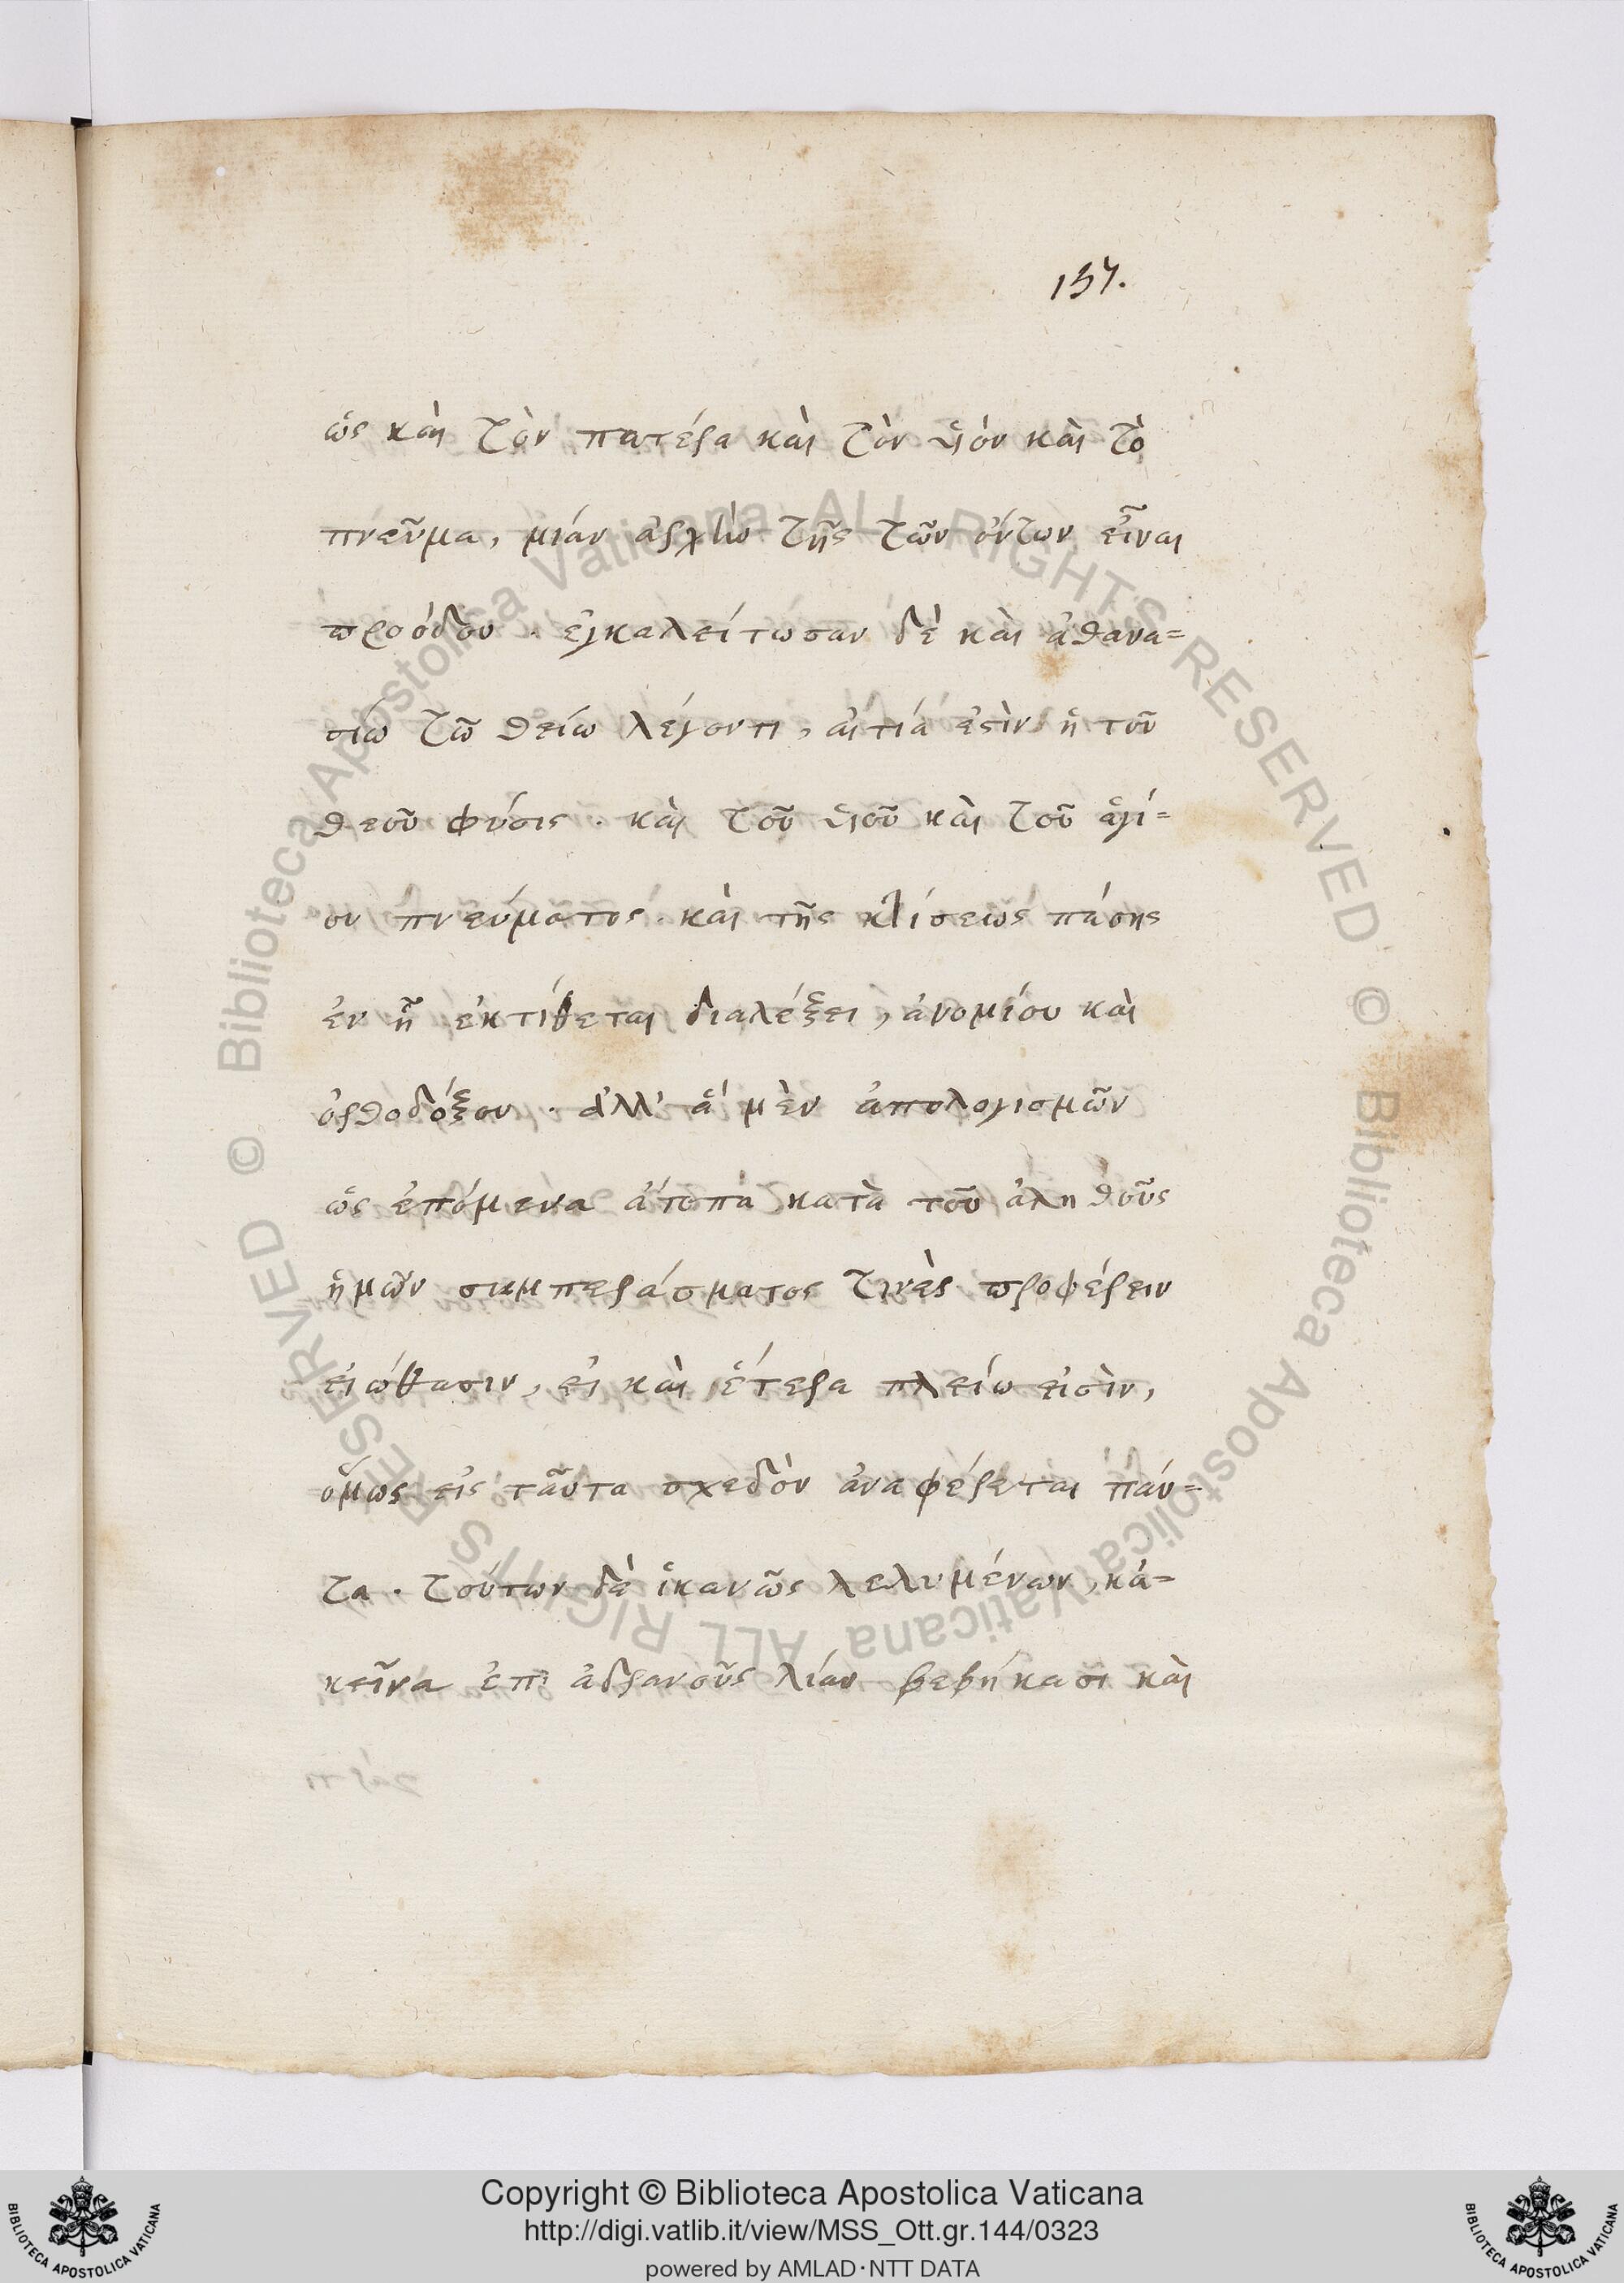 157.
ὡς καὶ τὸν πατέρα καὶ τὸν υἱόν καὶ τὸ
πνεῦμα, μιάν ἀρχὴν τῆς τῶν ὄντων εἶναι
προόδου. ἐγκαλείτωσαν δὲ καὶ ἀθανα=
σίω τῶ θείω λέγοντι, αἰτιά ἐστὶν ἡ τοῦ
θεοῦ φύσις. καὶ τοῦ υἱοῦ καὶ τοῦ ἁγί=
ου πνεύματος. καὶ τῆς κτίσεως πάσης
ἐν ἧ ἐκτίθεται διαλέξει, ἀνομίου καὶ
ὀρθοδόξου. ἀλλ' ἅ μὲν ἀπολογισμῶν
ὡς ἑπόμενα ἄτοπα κατὰ τοῦ ἀληθοῦς
ἡμῶν συμπεράσματος τινὲς προφέρειν
εἰώθασιν, εἰ καὶ ἕτερα πλείω εἰσὶν,
ὅμως εἰς ταῦτα σχεδὸν ἀναφέρεται πάν=
τα. τούτων δὲ ἱκανῶς λελυμένων, κἀ=
κεῖνα ἐπι ἀδρανοῦς λίαν βεβήκασι καὶ
Copyright © Biblioteca Apostolica Vaticana
http://digi.vatlib.it/view/MSS_Ott.gr.144/0323
powered by AMLAD·NTT DATA
BIBLIOTECA APOSTOLICA VATICANA
BIBLIOTECA APOSTOLICA VATICANA
© Biblioteca Apostolica Vaticana ALL RIGHTS RESERVED
© Biblioteca Apostolica Vaticana ALL RIGHTS RESERVED